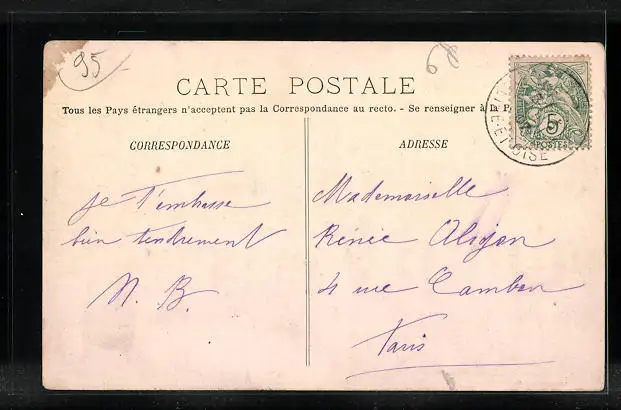 95
68
CARTE POSTALE
Tous les Pays étrangers n'acceptent pas la Correspondance au recto. - Se renseigner à la P
CORRESPONDANCE
ADRESSE
5
POSTES
ET-OISE
je t'embrasse
bien tendrement
N. B.
Mademoiselle
Renée
4 rue Cambon
Paris